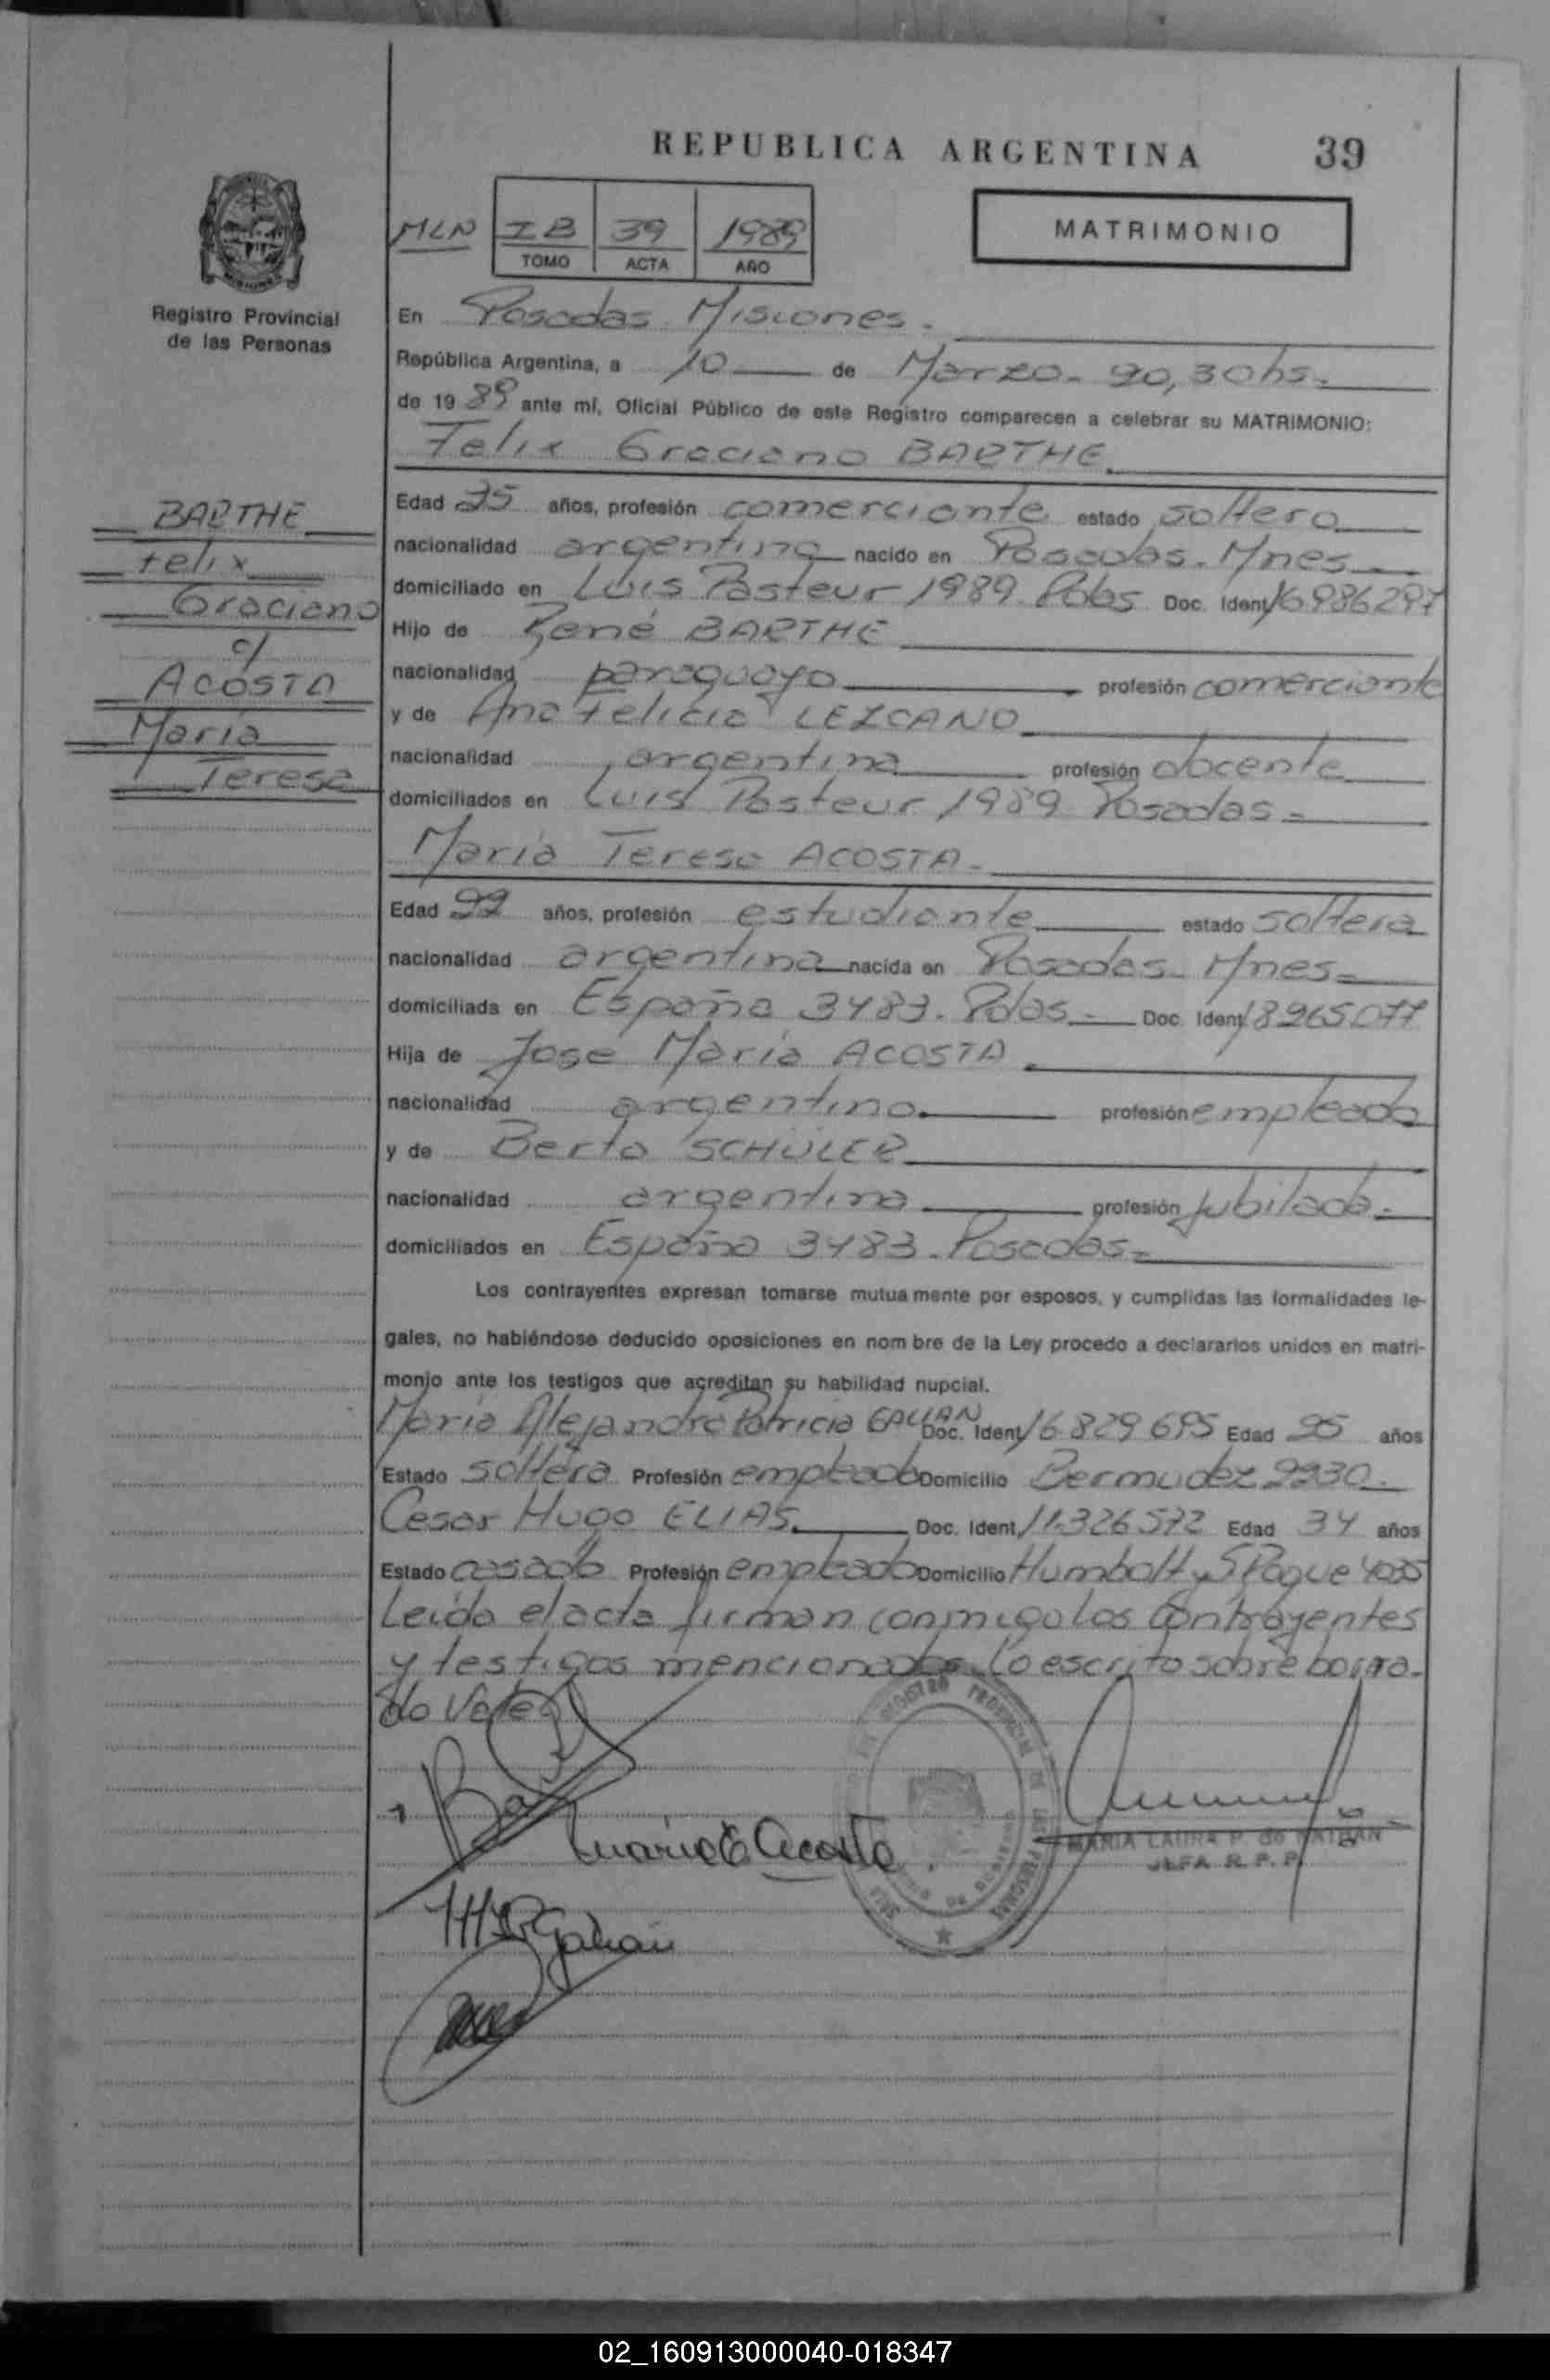 REPUBLICA ARGENTINA 39
MLN IB 39 1989
TOMO ACTA AÑO
MATRIMONIO
Registro Provincial
de las Personas
En Posadas Misiones.
República Argentina, a 10 de Marzo - 20,30hs -
de 19 89 ante mí, Oficial Público de este Registro comparecen a celebrar su MATRIMONIO:
Felix Graciano BARTHE
BARTHE
Felix
Graciano
c/
ACOSTA
María
Teresa
Edad 25 años, profesión comerciante estado soltero
nacionalidad argentina nacido en Posadas. Mnes
domiciliado en Luis Pasteur 1989. Pdas Doc. Ident. 16.986.297
Hijo de René BARTHE
nacionalidad paraguayo profesión comerciante
y de Ana Felicia LEZCANO
nacionalidad argentina profesión docente
domiciliados en Luis Pasteur 1989 Posadas =
María Teresa ACOSTA -
Edad 22 años, profesión estudiante estado soltera
nacionalidad argentina nacida en Posadas - Mnes =
domiciliada en España 3483. Pdas - Doc. Ident. 18265077
Hija de José María ACOSTA
nacionalidad argentino profesión empleado
y de Berta SCHÜLER
nacionalidad argentina profesión jubilada -
domiciliados en España 3483 - Posadas =
Los contrayentes expresan tomarse mutuamente por esposos, y cumplidas las formalidades le-
gales, no habiéndose deducido oposiciones en nombre de la Ley procedo a declararlos unidos en matri-
monio ante los testigos que acreditan su habilidad nupcial.
María Alejandra Patricia GALIAN Doc. Ident. 16.829.695 Edad 25 años
Estado soltera Profesión empleada Domicilio Bermudez 2230.
Cesar Hugo ELIAS Doc. Ident. 11.326.572 Edad 34 años
Estado casado Profesión empleado Domicilio Humbolt y S Roque 4035
Leída el acta firman conmigo los contrayentes
y testigos mencionados. Lo escrito sobre borra-
do Vale
Maria T. Acosta.
REGISTRO PROVINCIAL DE LAS PERSONAS
MARIA LAURA P. de
JEFA R. P. P.
Galian
02_160913000040-018347